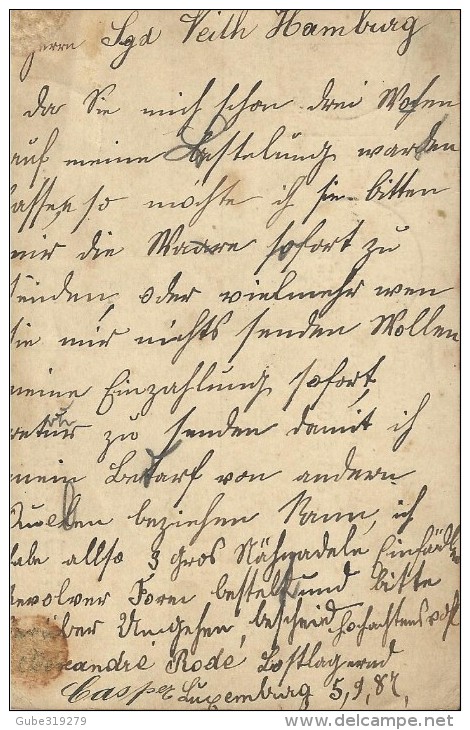 Herrn Sgd Veith Hamburg
da Sie mich schon drei Wochen
auf meine Bestelung warden
lassen so möchte ich sie bitten
mir die Waare sofort zu
senden, oder vielmehr wen
sie mir nichts senden Wollen
meine Einzahlung sofort,
retur zu senden damit ich
mein Bedarf von andern
Quellen beziehen kann, ich
habe allso 3 Gros Nähnadeln
Revolver Form bestelt und bitte
über Umgehen, bescheid hochachtensvoll
Alexandre Rodé Postlagernd
Luxemburg 5,9,87,
Gube319279